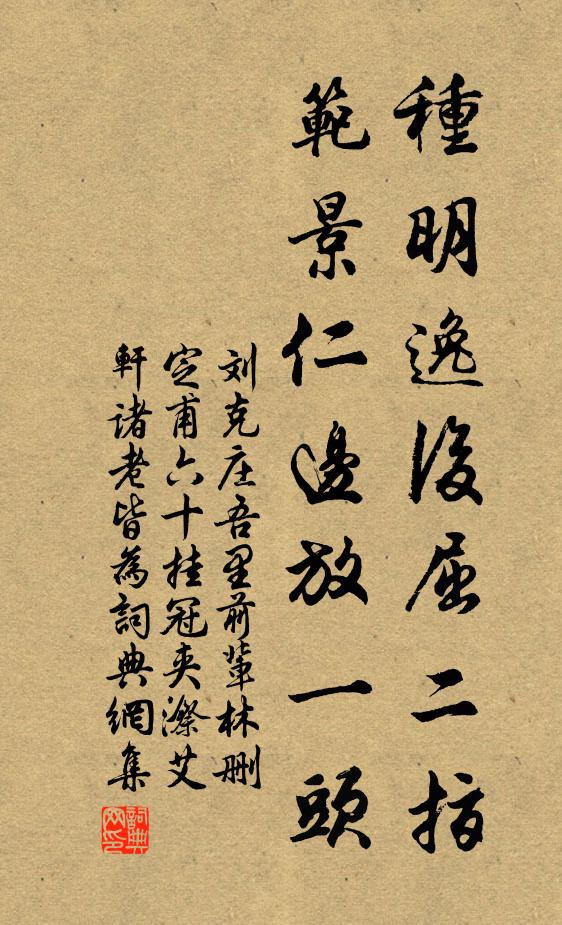 種明逸後屈二指
範景仁邊放一頭
刘克庄吾里前輩林删
定甫六十挂冠夾漈艾
軒諸老皆為詞典網集
詞典
网印